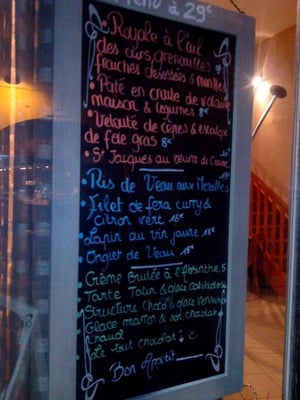 Menu à 29€
• Royale à l'ail
des ours, grenouilles
fraîches désossées & morilles
• Pâté en croute de volaille
maison & légumes 8€
• Velouté de cèpes & escalope
de foie gras 8€
• St Jacques au beurre de
• Ris de Veau aux Morilles
• Filet de fera curry &
citron vert 16€
• Lapin au vin jaune 18€
• Onglet de Veau 18€
• Crème Brulée à l'Absinthe 5
• Tarte Tatin & glace calvados
• Structure Choco & glace verveine
• Glace marron & son chocolat
chaud
• Le tout chocolat!
Bon appétit